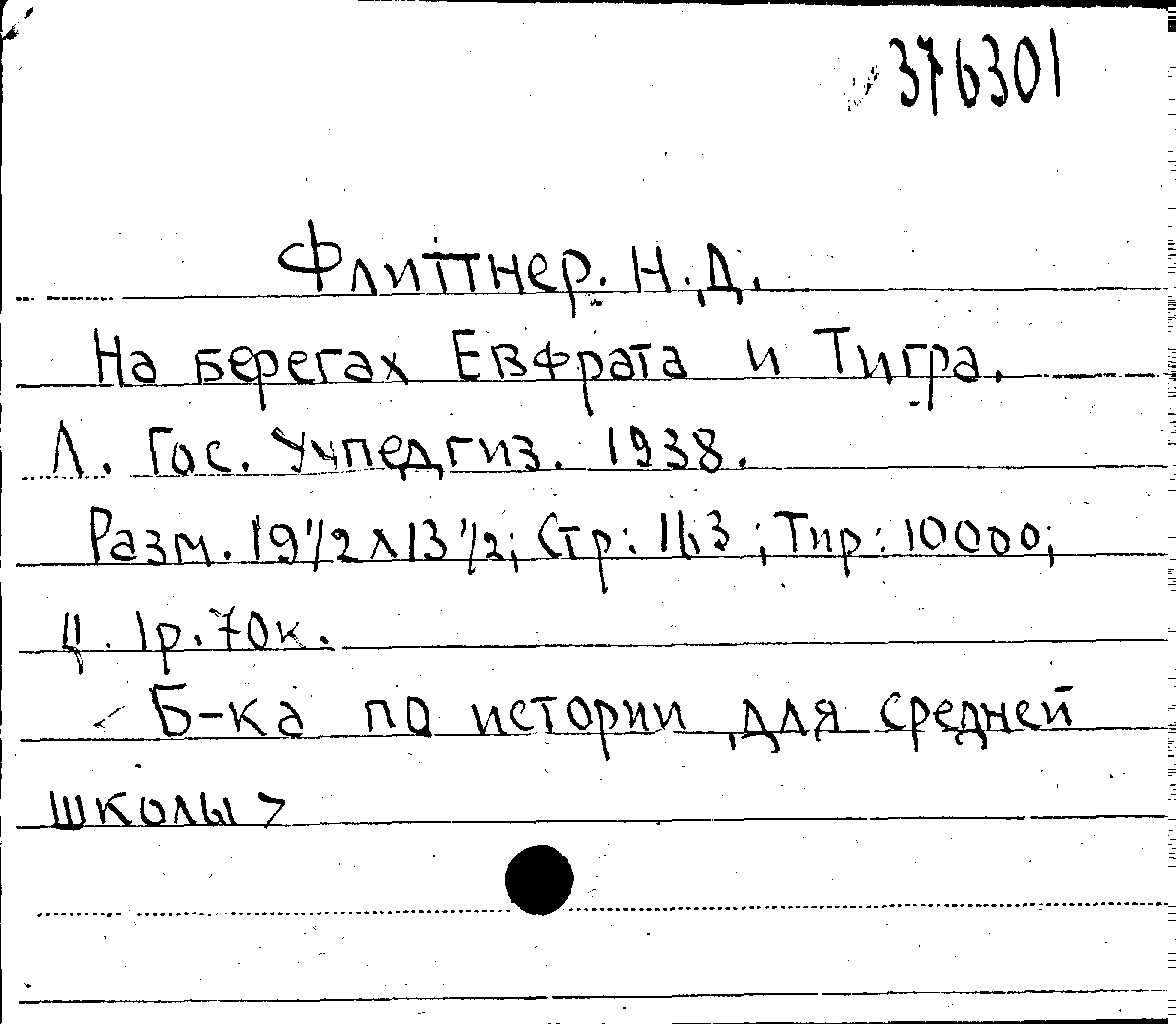 376301
Флиттнер. Н.Д.
На берегах Евфрата и Тигра.
Л. Гос. Учпедгиз. 1938.
Разм. 19 1/2 x 13 1/2; Стр: 163; Тир: 10000;
Ц. 1р. 70к.
<Б-ка по истории для средней
школы>